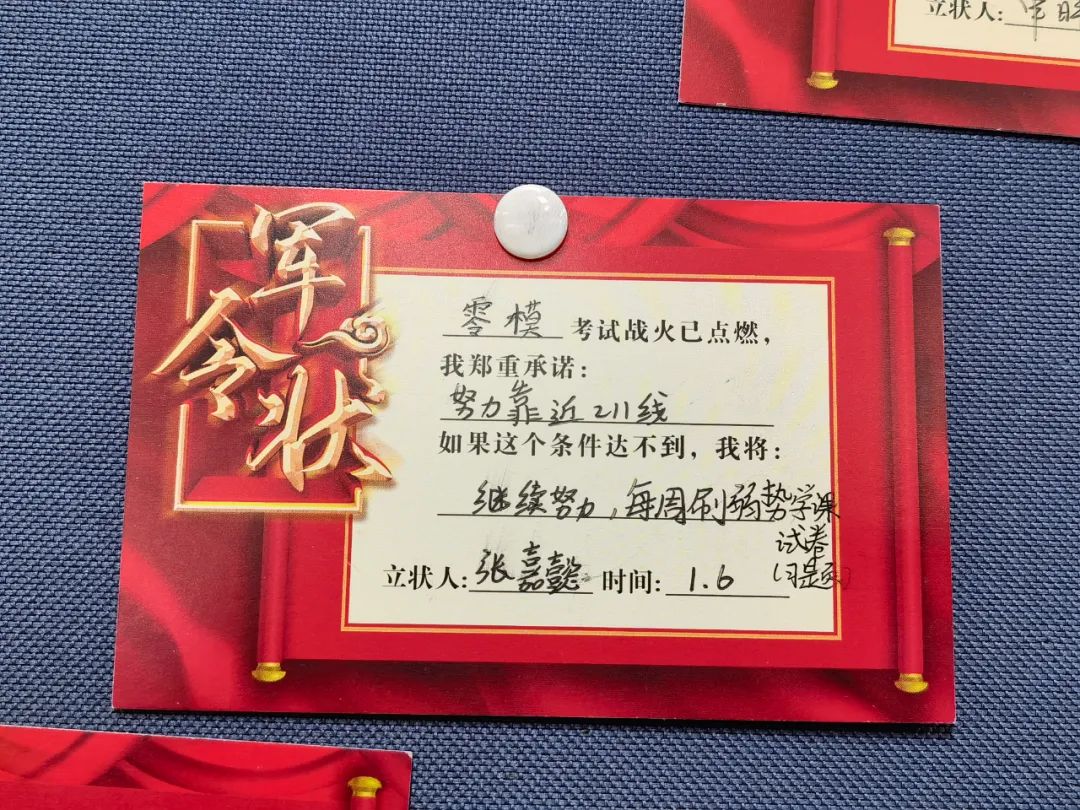 立状人:
军
令
状
零模 考试战火已点燃，
我郑重承诺：
努力靠近211线
如果这个条件达不到，我将：
继续努力，每周刷弱势学课
试卷
(习题)
立状人:张嘉懿 时间: 1.6